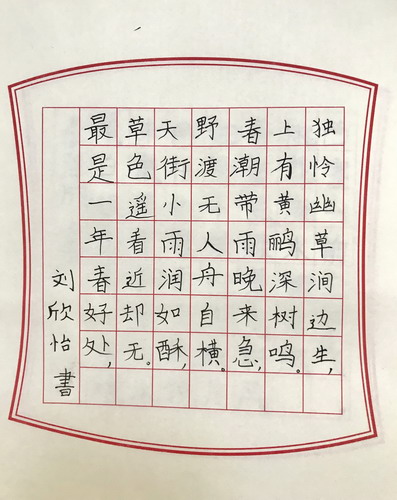 独怜幽草涧边生，
上有黄鹂深树鸣。
春潮带雨晚来急，
野渡无人舟自横。
天街小雨润如酥，
草色遥看近却无。
最是一年春好处，
刘欣怡書